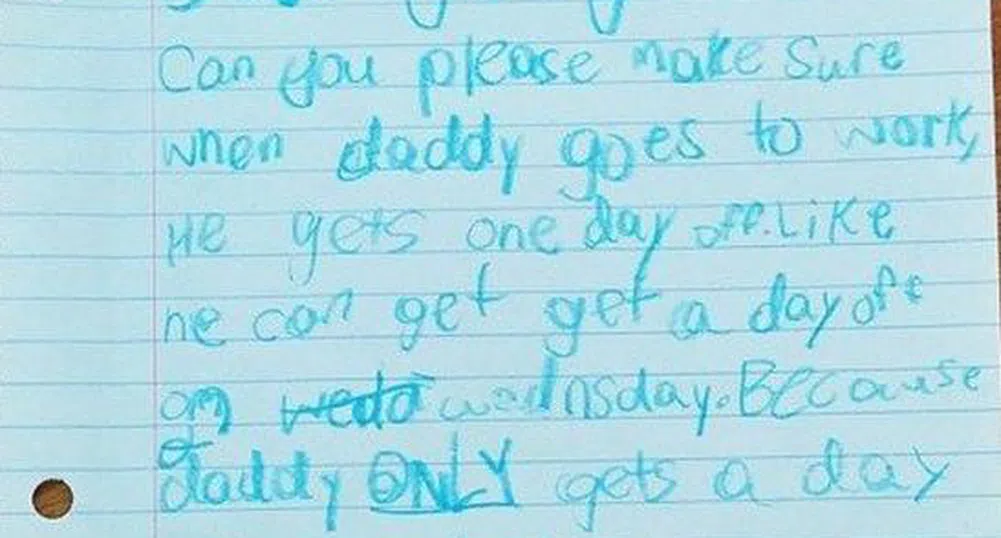 Can you please make Sure
when daddy goes to work,
He gets one day off. Like
he can get get a day off
on wednsday. Because
daddy ONLY gets a day